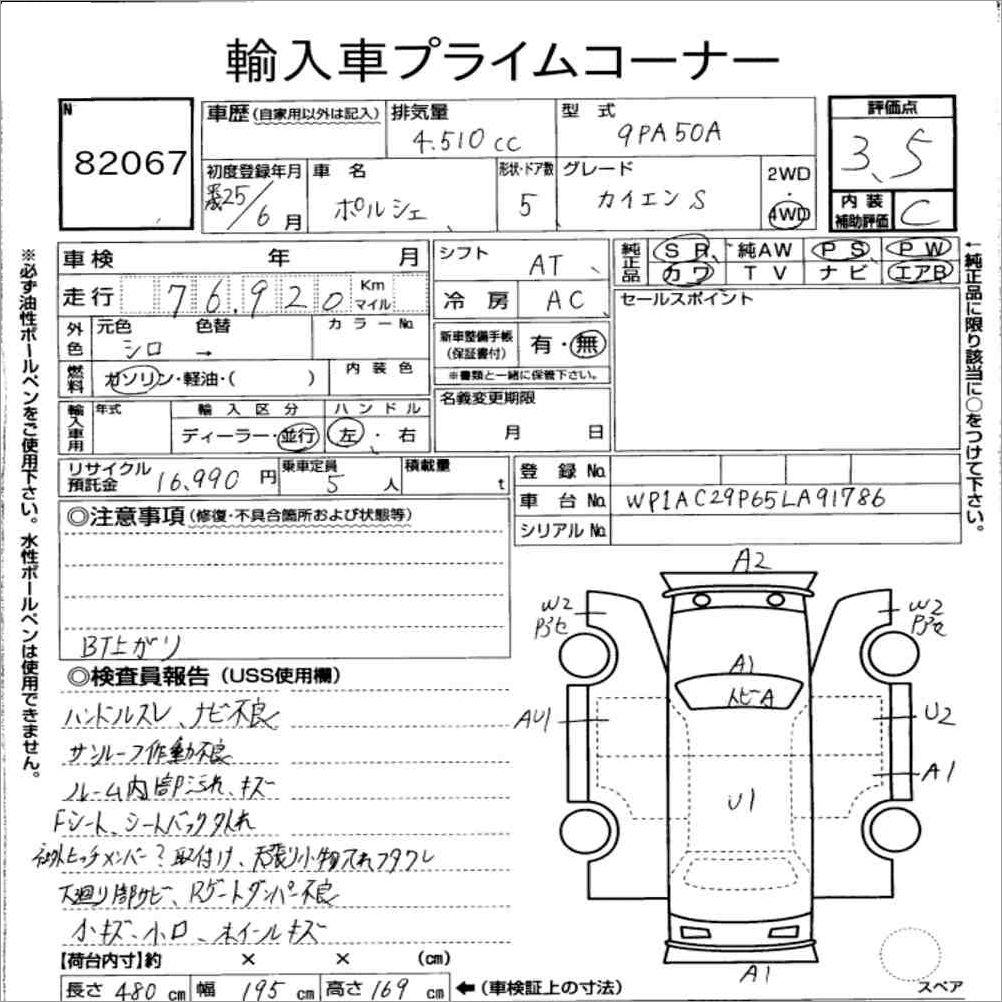 輸入車プライムコーナー
N
82067
車歴(自家用以外は記入)
排気量
4.510cc
型 式
9PA50A
評価点
3、5
初度登録年月
平成25/6月
車 名
ポルシェ
形状・ドア数
5
グレード
カイエンS
2WD
・
4WD
内装
補助評価
C
車検 年 月
走行 76.920 Km マイル
シフト
AT、
冷房
AC
純正品
SR 純AW PS PW
カワ TV ナビ エアB
セールスポイント
外色
元色 色替
シロ →
カラーNo.
燃料
ガソリン・軽油・( )
内装色
新車整備手帳
(保証書付)
有・無
※書類と一緒に保管下さい。
輸入車用
年式
輸入区分
ディーラー・並行
ハンドル
左・右
名義変更期限
月 日
リサイクル
預託金
16,990 円
乗車定員
5人
積載量
t
登録No.
車台No. WP1AC29P65LA91786
シリアルNo.
◎注意事項(修復・不具合箇所および状態等)
BT上がり
◎検査員報告(USS使用欄)
ハンドルスレ、ナビ不良
サンルーフ作動不良
ルーム内部汚れ、キズ
Fシート、シートバック外れ
社外ヒッチメンバー?取付け、天張り小物入れフタワレ
下廻り部サビ、Rゲートダンパー不良
小キズ、小凹、ホイールキズ
【荷台内寸】約 × × (cm)
長さ 480 cm 幅 195 cm 高さ 169 cm ←(車検証上の寸法)
A2
W2
W2
A1
トビA
AU1
U2
A1
U1
A1
スペア
※必ず油性ボールペンをご使用下さい。水性ボールペンは使用できません。
←純正品に限り該当に○をつけて下さい。